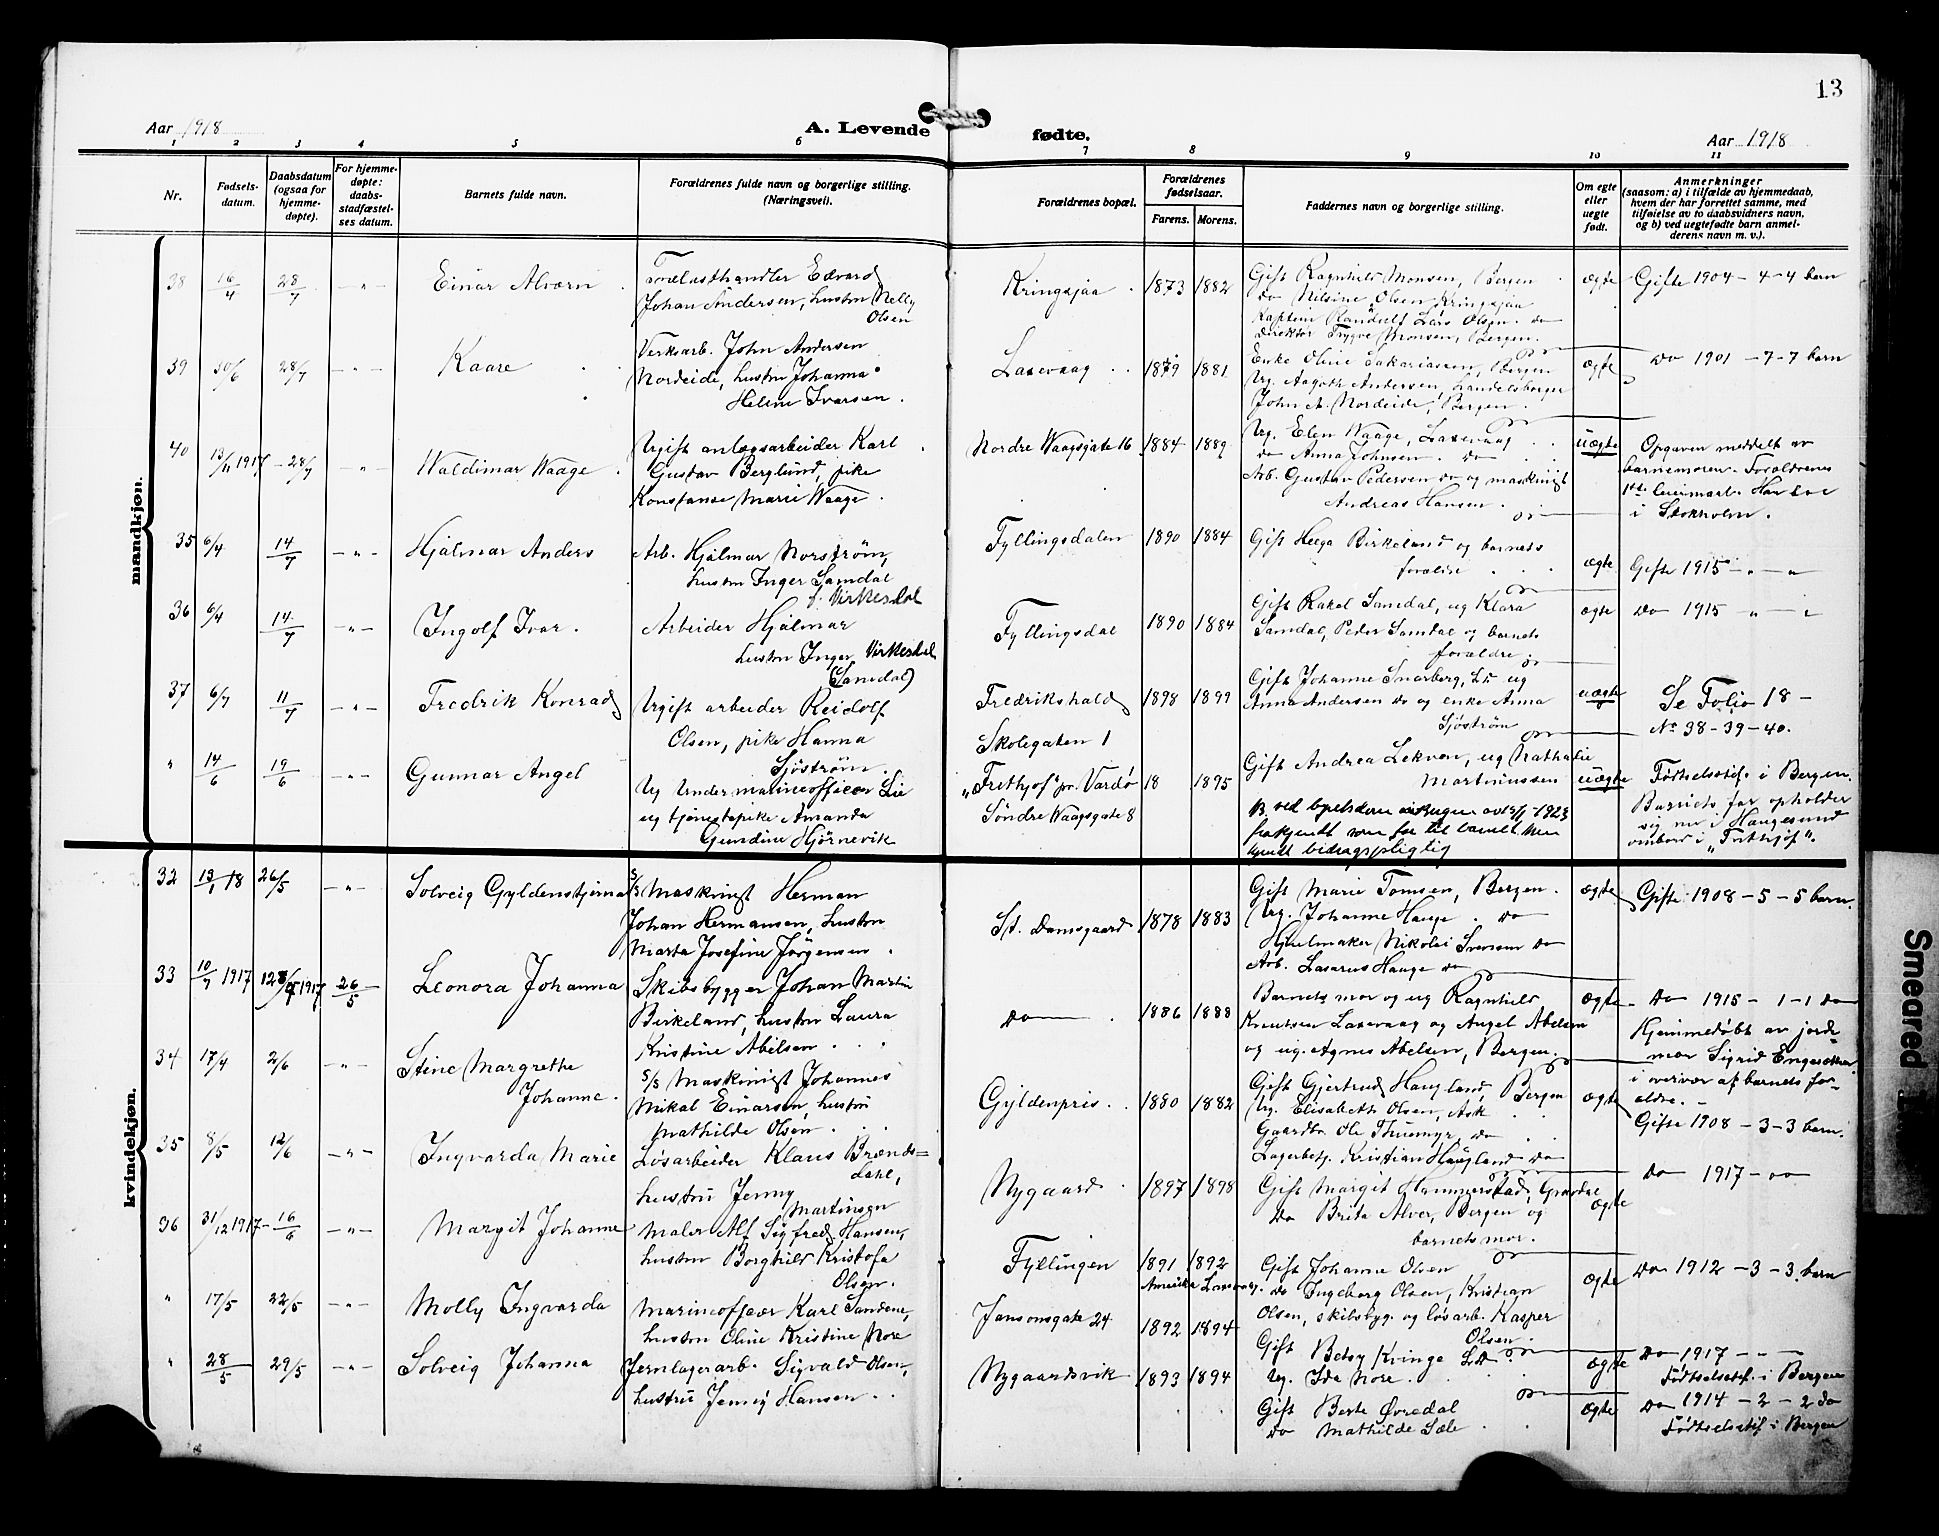 13
Aar 1918
A. Levende fødte.
Aar 1918
1 2 3 4 5 6 7 8 9 10 11
Nr.
Fødsels-
datum.
Daabsdatum
(ogsaa for
hjemme-
døpte).
For hjemme-
døpte:
daabs-
stadfæstel-
ses datum.
Barnets fulde navn.
Forældrenes fulde navn og borgerlige stilling.
(Næringsvei).
Forældrenes bopæl.
Forældrenes
fødselsaar.
Farens. Morens.
Faddernes navn og borgerlige stilling.
Om egte
eller
uegte
født.
Anmerkninger
(saasom: a) i tilfælde av hjemmedaab,
hvem der har forrettet samme, med
tilføielse av to daabsvidners navn,
og b) ved uegtefødte barn anmel-
derens navn m. v.).
mandkjøn.
38 16/4 28/7 -"- Einar Alvorn
Trælasthandler Edvard
Johan Andersen, hustru Nelly
Olsen
Kringsjaa 1873 1882
Gift Ragnhild Monsen, Bergen
do Nilsine Olsen Kringsjaa
Kaptein Randulf Lars Olsen do
Direktør Trygve Monsen, Bergen.
ægte
Gifte 1904 - 4 - 4 barn
39 30/6 28/7 -"- Kaare
Verksarb. John Andersen
Nordeide, hustru Johanna
Helene Ivarsen.
Laxevaag 1879 1881
Enke Oline Sakariassen, Bergen
Ug. Aagoth Andersen, Landelsbergen
John A. Nordeide, Bergen.
ægte
Do 1901 - 7 - 7 barn
40 13/11 1917 - 28/7 -"- Waldimar Waage
Ugift anlægsarbeider Karl
Gustav Berglund, pike
Konstanse Marie Waage.
Nordre Waagsgate 16 1884 1889
Ug. Elen Waage, Laxevaag
do Anna Johnsen do
Arb. Gustav Pedersen do og maskinist
Andreas Hansen.
uægte
Opgaven meddelt av
barnemoren. Forældrenes
1ste leiermaal. Han bor
i Stokholm.
35 6/4 14/7 -"- Hjalmar Anders
Arb. Hjalmar Norstrøm,
hustru Inger Samdal
f. Virkesdal
Fyllingsdalen 1890 1884
Gift Helga Birkeland og barnets
forældre
ægte
Gifte 1915 - " - "
36 6/4 14/7 -"- Ingolf Ivar.
Arbeider Hjalmar
hustru Inger Virkesdal
(Samdal)
Fyllingsdal 1890 1884
Gift Rakel Samdal, ug Klara
Samdal, Peder Samdal og barnets
forældre
ægte
Do 1915 " - "
37 6/7 11/7 -"- Fredrik Konrad
Ugift arbeider Reidolf
Olsen, pike Hanna
Sjöström.
Fredrikshald
Skolegaten 1
1898 1899
Gift Johanne Snarberg, Lv ug
Anna Andersen do og enke Anna
Sjöström
uægte
Se Folio 18 -
No 38-39-40.
" 14/6 19/6 -"- Gunnar Angel
Ug Undermarineofficer Lie
ug tjenestepike Amanda
Gundine Hjørnevik
"Frithjof" pr. Vardø
Søndre Waagsgate 8
18 1895
Gift Andrea Lekven, ug Nathalie
Martinussen
frakjendt som far til barnet, men
kjendt bidragspligtig
uægte
Fødselsstif. i Bergen.
Barnets far opholder
sig nu i Haugesund
ombord i "Frithjof".
kvindekjøn.
32 13/1 18 26/5 -"- Solveig Gyldenstjerna
S/S Maskinist Herman
Johan Hermansen, hustru
Marta Josefine Jørgensen
St. Damsgaard 1878 1883
Gift Marie Tomsen, Bergen.
Ug. Johanne Hauge do
Hjulmaker Nikolei Svensen do
Arb. Lasarus Hauge do
ægte
Gifte 1908 - 5 - 5 barn.
33 10/7 1917 1917 26/5 Leonora Johanna
Skibsbygger Johan Martin
Birkeland, hustru Laura
Kristine Abelsen
Do 1886 1888
Barnets mor og ug Ragnhild
Knutsen Laxevaag og Angel Abelsen
og ug. Agnes Abelsen, Bergen.
ægte
Do 1915 - 1 - 1 do
Hjemmedøbt av jord-
mor Sigrid
i overvær af barnets for-
ældre.
34 17/4 2/6 -"- Stine Margrethe
Johanne.
S/S Maskinist Johannes
Mikal Einarsen, hustru
Mathilde Olsen
Gyldenpris 1880 1882
Gift Gjertrud Haugland, Bergen
Ug. Elisabeth Olsen, Ask
Gaardbr. Ole Thuemyr, do
Lagerbetj. Kristian Haugland do
ægte
Gifte 1908 - 3 - 3 barn.
35 8/5 12/6 -"- Ingvarda Marie
Løsarbeider Klaus Brænds-
dahl,
hustru Jenny
Martinsen
Nygaard 1897 1898
Gift Margit Hammerstad, Gravdal
Do Brita Alver, Bergen og
barnets mor.
ægte
Do 1917 - oo
36 31/12 1917 - 16/6 -"- Margit Johanne
Maler Alf Sigfred Hansen,
hustru Borghild Kristofa
Olsen.
Fyllingen 1891 1892
Amerika Laxevaag.
Gift Johanne Olsen
do Ingeborg Olsen, Kristian
Olsen, skibsbyg. og løsarb. Kasper
Olsen.
ægte
Do 1912 - 3 - 3 barn
" 17/5 22/5 -"- Molly Ingvarda
Marineofficer Karl Sandene,
hustru Oline Kristine Nore
Jansonsgate 24 1892 1894
Gift Betsy Kvinge Lv.
Ug. Ida Nore.
ægte
Do 1917 - - -
Fødselsstif. i Bergen
" 28/5 29/5 -"- Solveig Johanna
Jernlagerarb. Sigvald Olsen,
hustru Jenny Hansen
Nygaardsvik 1893 1894
Gift Berte Øvredal
Do Mathilde Sæle
ægte
Do 1914 - 2 - 2 do
Fødselsstif. i Bergen
Smeared